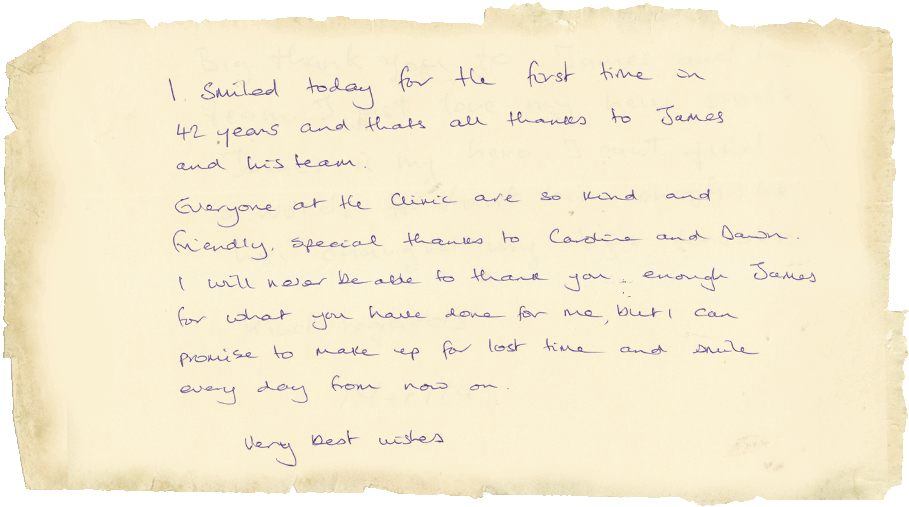 I smiled today for the first time in
42 years and thats all thanks to James
and his team.
Everyone at the Clinic are so kind and
friendly. Special thanks to Caroline and Dawn.
I will never be able to thank you enough James
for what you have done for me, but I can
promise to make up for lost time and smile
every day from now on.
Very best wishes